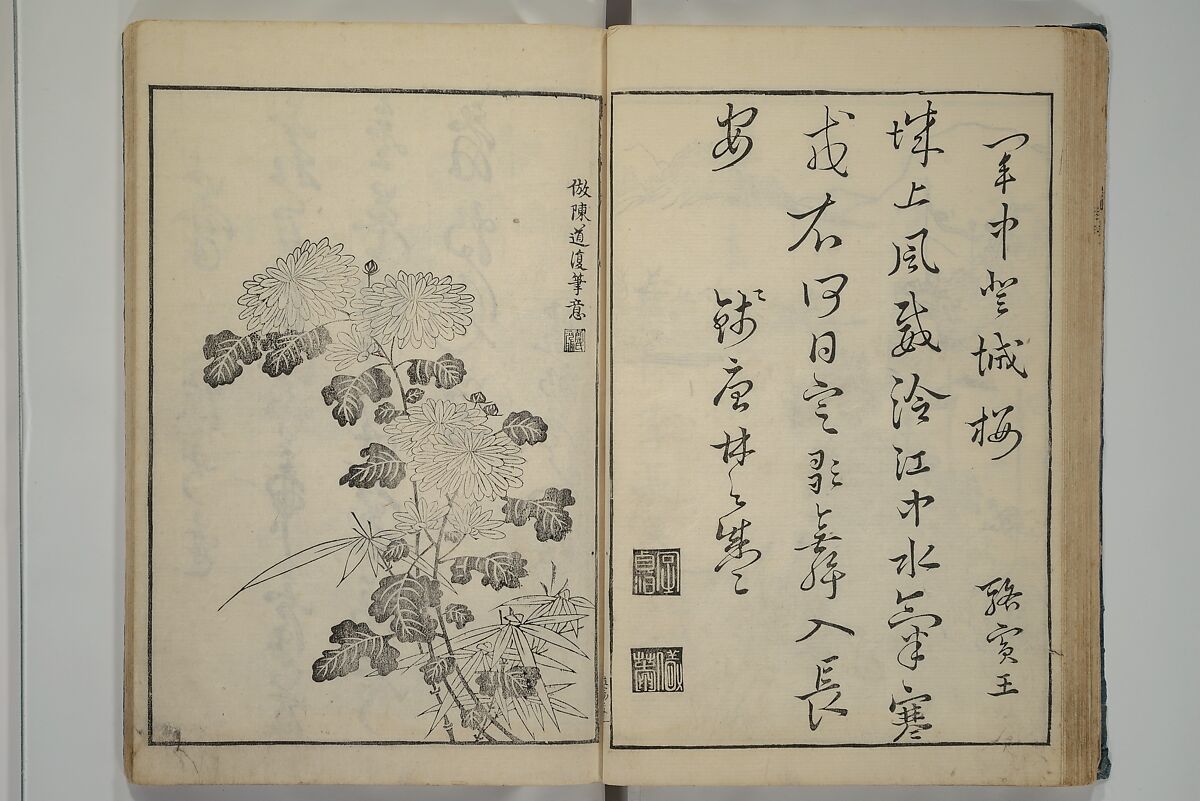 軍中登城楼
駱賓王
城上風威冷江中水氣寒
戎衣何日定歌舞入長
安
錢唐林之
倣陳道復筆意